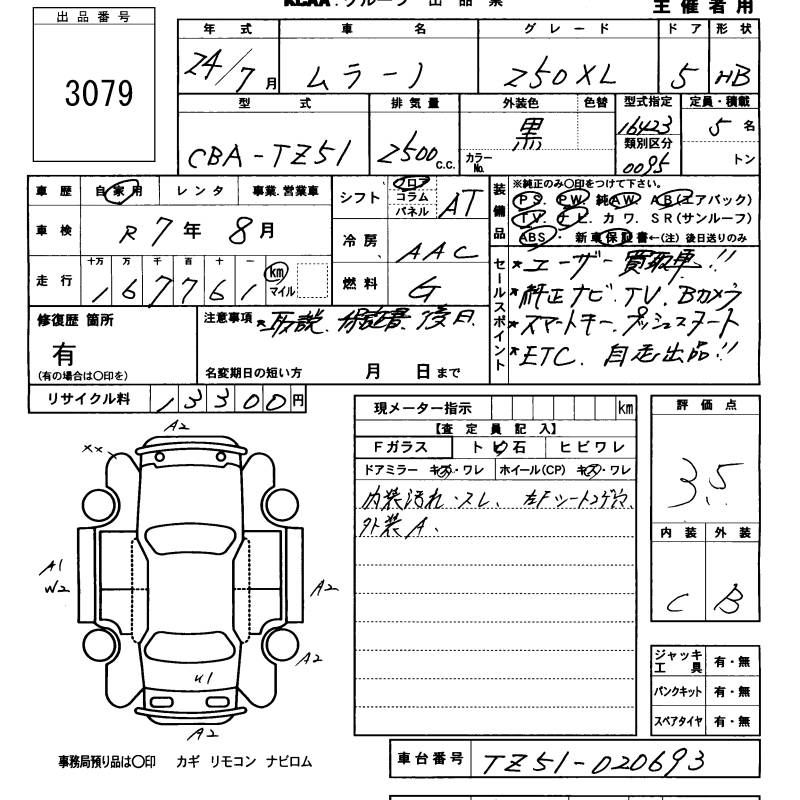 出品番号
3079
KCAA.グループ 出品票
主催者用
年式 車名 グレード ドア 形状
24/7月 ムラーノ 250XL 5 HB
型式 排気量 外装色 色替 型式指定 定員・積載
CBA-TZ51 2500c.c. 黒 16423 5名
カラーNo. 類別区分 0095 トン
車歴 自家用 レンタ 事業.営業車
車検 R7年8月
走行 十万 万 千 百 十 一 km マイル
167761
シフト フロア コラム パネル AT
冷房 AAC
燃料 G
装備品
※純正のみ○印をつけて下さい。
PS. PW. 純AW. AB(エアバック)
TV. ナビ. カワ. SR(サンルーフ)
ABS・新車保証書←(注)後日送りのみ
セールスポイント
*ユーザー買取車!!
*純正ナビ.TV.Bカメラ
*スマートキー.プッシュスタート
*ETC. 自走出品!!
修復歴 箇所
有
(有の場合は○印を)
注意事項 *取説.保証書.後日
名変期日の短い方 月 日まで
リサイクル料 13300円
現メーター指示 km
【査定員記入】
Fガラス トビ石 ヒビワレ
ドアミラー キズ・ワレ ホイール(CP) キズ・ワレ
内装汚れ・スレ、左Fシートコゲ穴、
外装A、
評価点
3.5
内装 外装
C B
A2
xx
A1
W2
A2
A2
U1
A2
ジャッキ 工具 有・無
パンクキット 有・無
スペアタイヤ 有・無
事務局預り品は○印 カギ リモコン ナビロム
車台番号 TZ51-020693